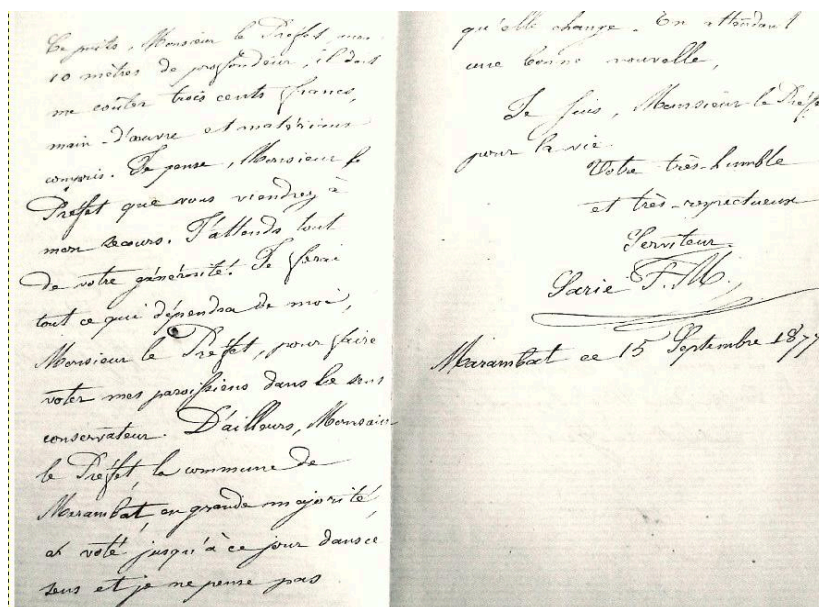 Ce puits, Monsieur le Préfet, aura
10 mètres de profondeur, il doit
me coûter trois cents francs,
main-d'œuvre et matériaux
compris. Je pense, Monsieur le
Préfet que vous viendrez à
mon secours. J'attends tout
de votre générosité. Je ferai
tout ce qui dépendra de moi,
Monsieur le Préfet, pour faire
voter mes paroissiens dans le sens
conservateur. D'ailleurs, Monsieur
le Préfet, la commune de
Marambat, en grande majorité,
a voté jusqu'à ce jour dans ce
sens et je ne pense pas
qu'elle change. En attendant
une bonne nouvelle,
Je suis, Monsieur le Préfet
pour la vie.
Votre très-humble
et très-respectueux
Serviteur.
Sarie F. M.
Marambat ce 15 Septembre 1877